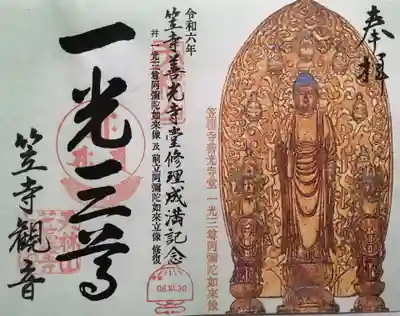 奉拝
笠覆寺善光寺堂 一光三尊阿弥陀如来像
令和六年
笠寺善光寺堂修理成満記念
并 一光三尊阿彌陀如来像 及 前立阿彌陀如来立像 修復
06.10.30
一光三尊
笠寺観音